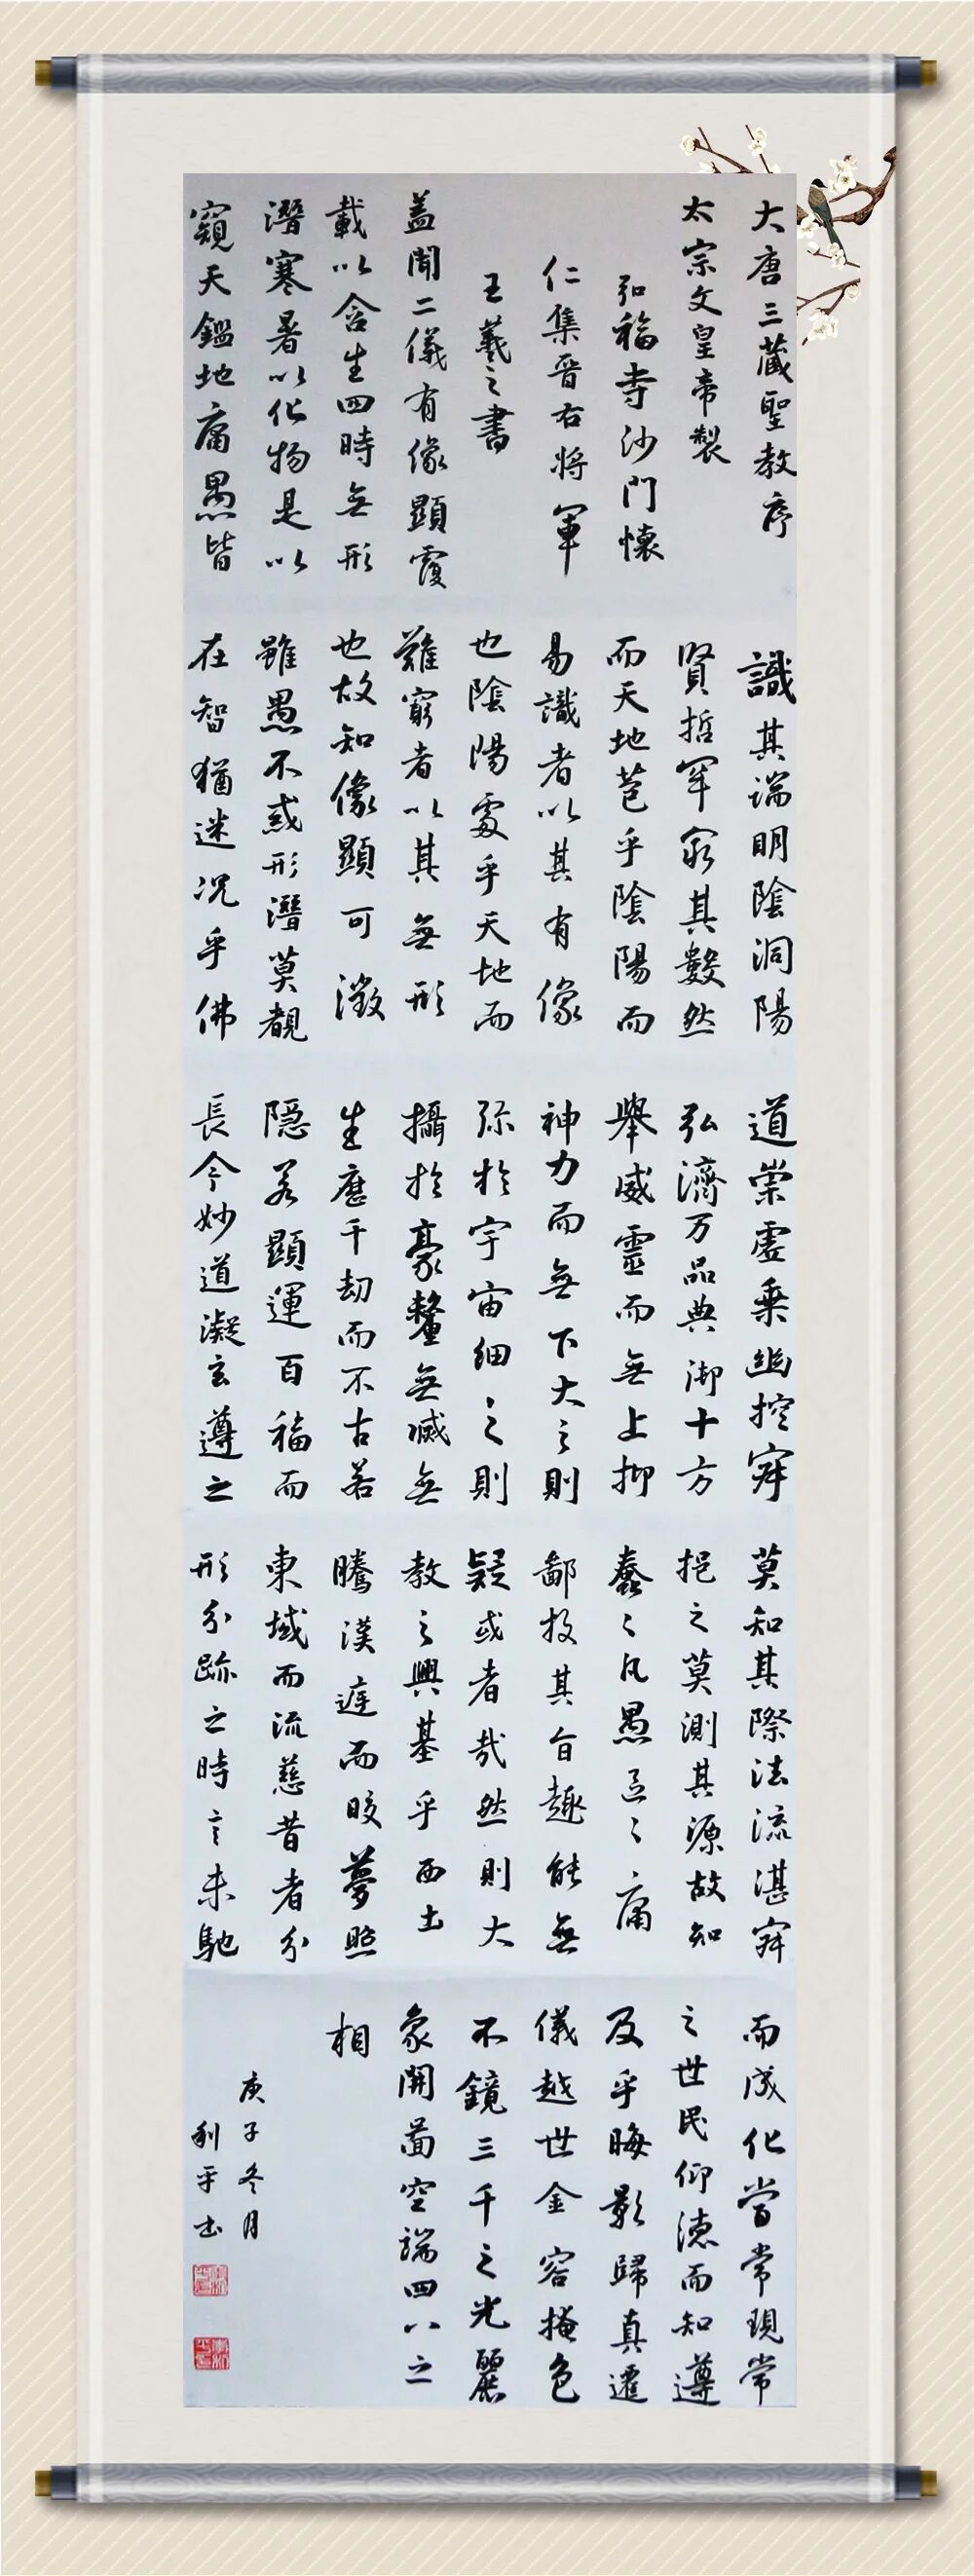 大唐三藏聖教序
太宗文皇帝製
弘福寺沙門懷
仁集晉右將軍
王羲之書
蓋聞二儀有像顯覆
載以含生四時無形
潛寒暑以化物是以
窺天鑑地庸愚皆
識其端明陰洞陽
賢哲罕窮其數然
而天地苞乎陰陽而
易識者以其有像
也陰陽處乎天地而
難窮者以其無形
也故知像顯可徵
雖愚不惑形潛莫覩
在智猶迷況乎佛
道崇虛乘幽控寂
弘濟万品典御十方
舉威靈而無上抑
神力而無下大之則
弥於宇宙細之則
攝於豪釐無滅無
生歷千劫而不古若
隱若顯運百福而
長今妙道凝玄遵之
莫知其際法流湛寂
挹之莫測其源故知
蠢〻凡愚區〻庸
鄙投其旨趣能無
疑或者哉然則大
教之興基乎西土
騰漢庭而皎夢照
東域而流慈昔者分
形分跡之時言未馳
而成化當常現常
之世民仰德而知遵
及乎晦影歸真遷
儀越世金容掩色
不鏡三千之光麗
象開圖空端四八之
相
庚子冬月
利平书